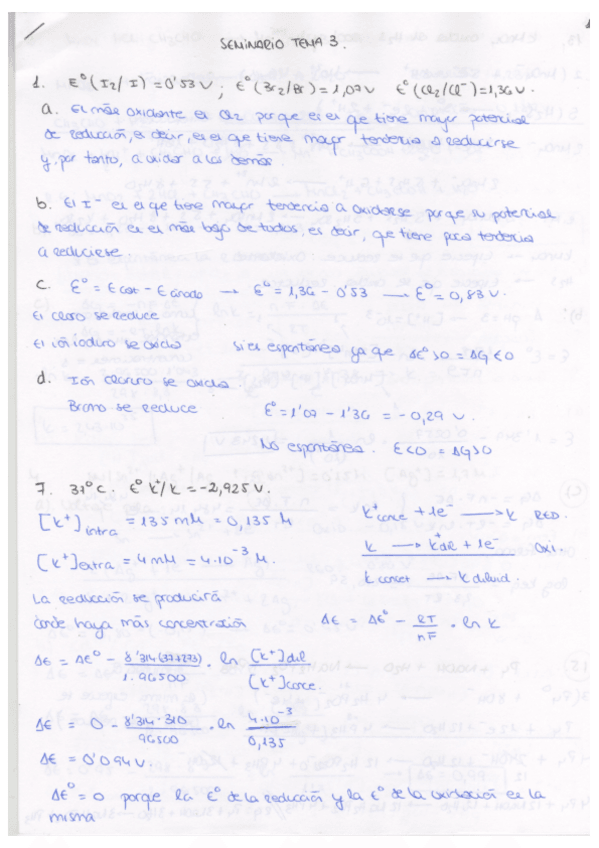 SEMINARIO TEMA 3.
1. E°(I2/I) = 0'53 V ; E°(Br2/Br) = 1,07 V E°(Cl2/Cl⁻) = 1,36 V.
a. El más oxidante es Cl2 porque es el que tiene mayor potencial
de reducción, es decir, es el que tiene mayor tendencia a reducirse
y, por tanto, a oxidar a los demás.
b. El I⁻ es el que tiene mayor tendencia a oxidarse porque su potencial
de reducción es el más bajo de todos, es decir, que tiene poca tendencia
a reducirse.
c. E° = E cat - E ánodo → E° = 1,36 - 0'53 → E° = 0,83 V.
El cloro se reduce
El ión ioduro se oxida Si es espontánea ya que ΔE° > 0 = ΔG < 0
d. Ión cloruro se oxida.
Bromo se reduce E° = 1'07 - 1'36 = -0,29 V.
No espontánea. E < 0 = ΔG > 0
7. 37°C. E° K⁺/K = -2,925.
[K⁺]intra = 135 mM = 0,135 M K⁺conc + 1e⁻ → K RED.
[K⁺]extra = 4 mM = 4·10⁻³ M. K → K⁺dil + 1e⁻ OXI.
K concet → K diluid.
La reducción se producirá
donde haya más concentración ΔE = ΔE° - RT/nF · ln K
ΔE = ΔE° - 8'314·(37+273)/1·96500 · ln [K⁺]dil/[K⁺]conc.
ΔE = 0 - 8'314·310/96500 · ln 4·10⁻³/0,135
ΔE = 0'094 V.
ΔE° = 0 porque la E° de la reducción y la E° de la oxidación es la
misma